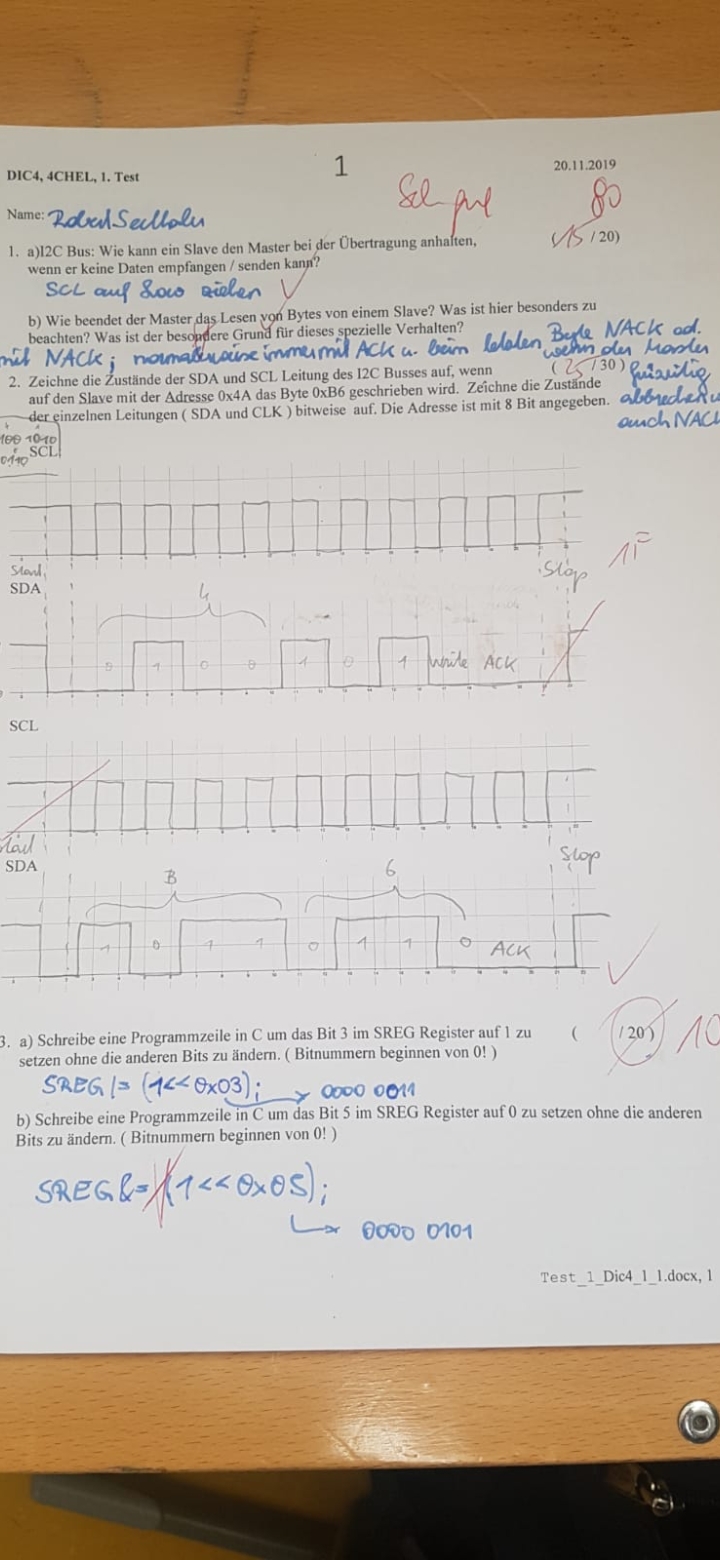 1
DIC4, 4CHEL, 1. Test
20.11.2019
80
Name: Robert
1. a)I2C Bus: Wie kann ein Slave den Master bei der Übertragung anhalten,
( 15 / 20)
wenn er keine Daten empfangen / senden kann?
SCL auf Low ziehen
b) Wie beendet der Master das Lesen von Bytes von einem Slave? Was ist hier besonders zu
beachten? Was ist der besondere Grund für dieses spezielle Verhalten?
mit NACK; normalerweise immer mit ACK u. beim letzten Byte NACK od.
wenn der Master
frühzeitig
abbrechen
auch NACK
2. Zeichne die Zustände der SDA und SCL Leitung des I2C Busses auf, wenn
( 25 /30)
auf den Slave mit der Adresse 0x4A das Byte 0xB6 geschrieben wird. Zeichne die Zustände
der einzelnen Leitungen ( SDA und CLK ) bitweise auf. Die Adresse ist mit 8 Bit angegeben.
100 1010
0110
SCL
1F
Start
Stop
SDA
4
0 1 0 0 1 0 1 Write ACK
SCL
Start
Stop
SDA
B 6
1 0 1 1 0 1 1 0 ACK
3. a) Schreibe eine Programmzeile in C um das Bit 3 im SREG Register auf 1 zu
( /20) 10
setzen ohne die anderen Bits zu ändern. ( Bitnummern beginnen von 0! )
SREG |= (1<<0x03); → 0000 0011
b) Schreibe eine Programmzeile in C um das Bit 5 im SREG Register auf 0 zu setzen ohne die anderen
Bits zu ändern. ( Bitnummern beginnen von 0! )
SREG &= (1<<0x05);
→ 0000 0101
Test_1_Dic4_1_1.docx, 1